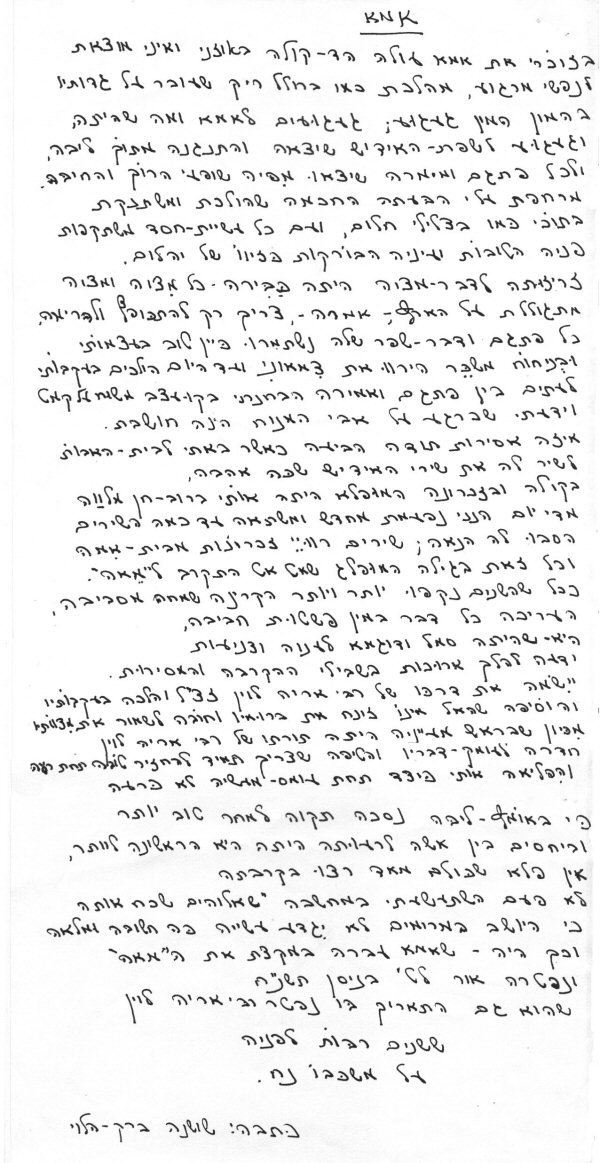 אמא
בזוכרי את אמא עולה הד-קולה באוזני ואיני מוצאת
לנפשי מרגוע, מהלכת כמו בחולל ריק שעובר על גדותיו
בהמון המון געגוע; געגועים לאמא ומה שהיתה,
וגעגוע לשפת-האידיש שיצאה והתנגנה מתוך ליבה,
ולכל פתגם ומימרה שיצאו מפיה שופעי הרוך והחיבה.
מרחפת עלי הבעתה החכמה שהולכת ומשתנקת
בתוכי כמו בצלילי חלום, ועם כל עשיית-חסד משתקפות
פניה הטובות ועיניה הבורקות כזיוו של יהלום.
זריזותה לדבר-מצוה היתה כבירה - כל מצוה ומצוה
מתגוללת על הארץ - אמרה -, צריך רק להתכופף ולהרימה,
כל פתגם ודבר-שפר שלה נשתמרו כיין טוב בעצמותי
ובניחוח משכר הירוו את צמאוני ועד היום הולכים בעקבותי
לעתים בין פתגם ואמירה הבחנתי בקו-עצב
וידעתי שכרגע על אבי המנוח הינה חושבת.
איזה אסירות תודה הביעה כאשר באתי לבית-האבות
לשיר לה את שירי האידיש שכה אהבה,
בקולה ובזכרונה המופלא היתה אותי ברוב-חן מלווה
מדי יום הנני נפעמת מחדש ומשתאה עד כמה השירים
הסבו לה הנאה; שירים רוויי זכרונות מבית-אמה
וכל זאת בגילה המופלג שאט אט התקרב ל"מאה".
ככל שהשנים נקפו יותר ויותר הקרינה שמחה מסביבה,
העריכה כל דבר באין פשטות חביבה,
היא - שהיתה סמל ודוגמא לענוה וצניעות
ידעה להלך ארוכות בשבילי הקרבה והאסירות.
יישמה את דרכו של רבי אריה לוין זצ"ל והלכה בעקבותיו
והוסיפה שהאל אינו זונח את ברואיו וחובה לשמור את מצוותיו
מכיון שבראש מעייניה היתה תורתו של רבי אריה לוין
חדרה לעומק-דבריו והטיפה שצריך תמיד להחזיר טובה תחת רעה
והפליאה אותי כיצד תחת עומס-מעשיה לא כרעה
כי באומץ-ליבה נסכה תקוה למחר טוב יותר
וביחסים בין אשה לרעותה היתה היא הראשונה לוותר,
אין פלא שכולם מאד רצו בקרבתה
לא פעם השתעשעתי במחשבה "שאלוהים שכח אותה
כי היושב במרומים לא יגדע עשייה כה חשובה ומלאה
וכך היה - שאמא עברה במקצת את ה"מאה"
ונפטרה אור לט' בניסן תשנ"ח
שהוא גם התאריך בו נפטר רבי אריה לוין
ששנים רבות לפניה
על משכבו נח.
כתבה: שושנה ברק-הלוי